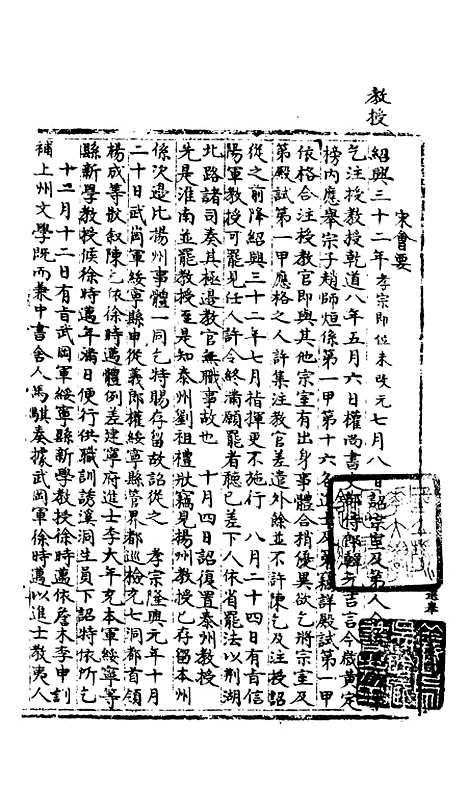 教授
宋會要
紹興三十二年孝宗即位未改元七月八日詔宗室及第人
乞注授教授乾道八年五月六日權尚書吏部侍郎韓元吉言今歲黃定
榜内應舉宗子趙師烜係第一甲第十六名
詳殿試第一甲
依格合注授教官即與其他宗室有出身事體合稍優異欲乞將宗室及
第殿試第一甲應格之人許集注教官差遣外餘並不許陳乞及注授詔
從之前降紹興三十二年七月指揮更不施行 八月二十四日有旨信
陽軍教授可罷見任人許令終滿願罷者聽已差下人依省罷法以荆湖
北路諸司奏其極邊教官無職事故也 十月四日詔復置泰州教授
先是淮南並罷教授至是知泰州劉祖禮狀竊見揚州教授已存留本州
係次邊比揚州事體一同乞特賜存留故詔從之 孝宗隆興元年十月
二十日武岡軍綏寧縣申從義郎權綏寧縣管界都巡檢充七洞都首領
楊成等狀叙陳乞依徐時邁體例差建寧府進士李大年充本軍綏寧等
縣新學教授候徐時邁年滿日便行供職訓誘溪洞生員下詔特依所乞
十二月十二日有旨武岡軍綏寧縣新學教授徐時邁依詹木李申訓
補上州文學既而兼中書舍人馬騏奏據武岡軍徐時邁以進士教夷人